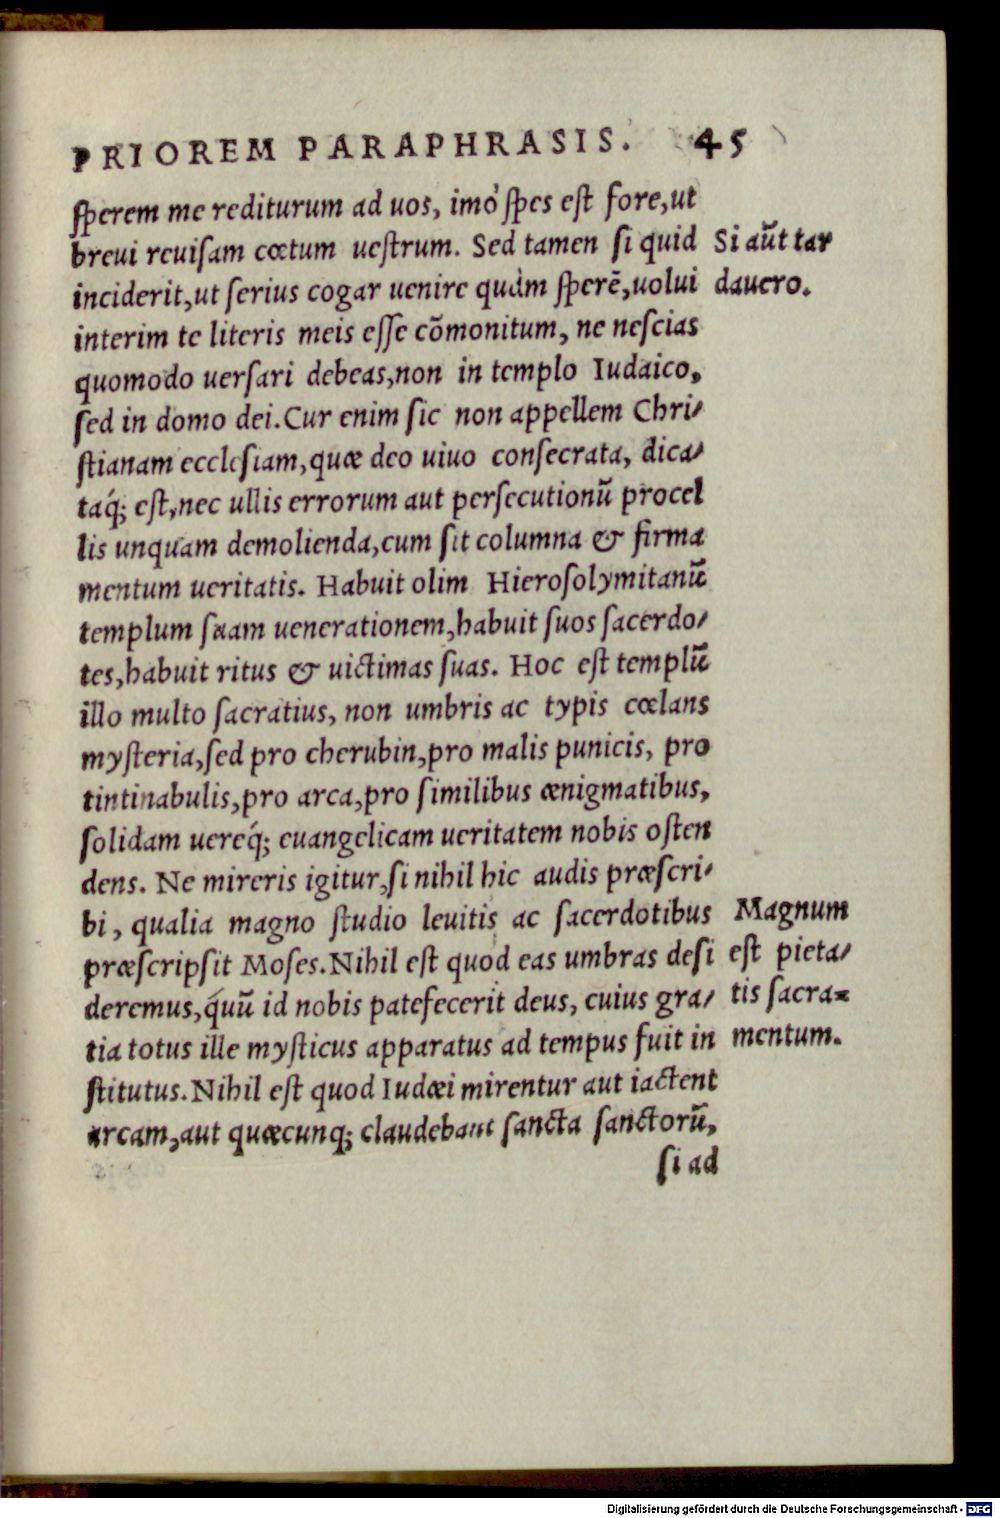 PRIOREM PARAPHRASIS. 45
ſperem me rediturum ad uos, imò ſpes eſt fore, ut
breui reuiſam cœtum ueſtrum. Sed tamen ſi quid
Si aūt tar
inciderit, ut ſerius cogar uenire quàm ſperē, uolui
dauero.
interim te literis meis eſſe cōmonitum, ne neſcias
quomodo uerſari debeas, non in templo Iudaico,
ſed in domo dei. Cur enim ſic non appellem Chri/
ſtianam eccleſiam, quæ deo uiuo conſecrata, dica/
taq́; eſt, nec ullis errorum aut perſecutionū procel
lis unquam demolienda, cum ſit columna & firma
mentum ueritatis. Habuit olim Hieroſolymitanū
templum ſuam uenerationem, habuit ſuos ſacerdo/
tes, habuit ritus & uictimas ſuas. Hoc eſt templū
illo multo ſacratius, non umbris ac typis cœlans
myſteria, ſed pro cherubin, pro malis punicis, pro
tintinabulis, pro arca, pro ſimilibus ænigmatibus,
ſolidam uereq́; euangelicam ueritatem nobis oſten
dens. Ne mireris igitur, ſi nihil hic audis præſcri/
bi, qualia magno ſtudio leuitis ac ſacerdotibus
Magnum
præſcripſit Moſes. Nihil eſt quod eas umbras deſi
eſt pieta/
deremus, q́uū id nobis patefecerit deus, cuius gra/
tis ſacra=
tia totus ille myſticus apparatus ad tempus fuit in
mentum.
ſtitutus. Nihil eſt quod Iudæi mirentur aut iactent
arcam, aut quæcunq; claudebant ſancta ſanctorū,
ſi ad
Digitalisierung gefördert durch die Deutsche Forschungsgemeinschaft - DFG